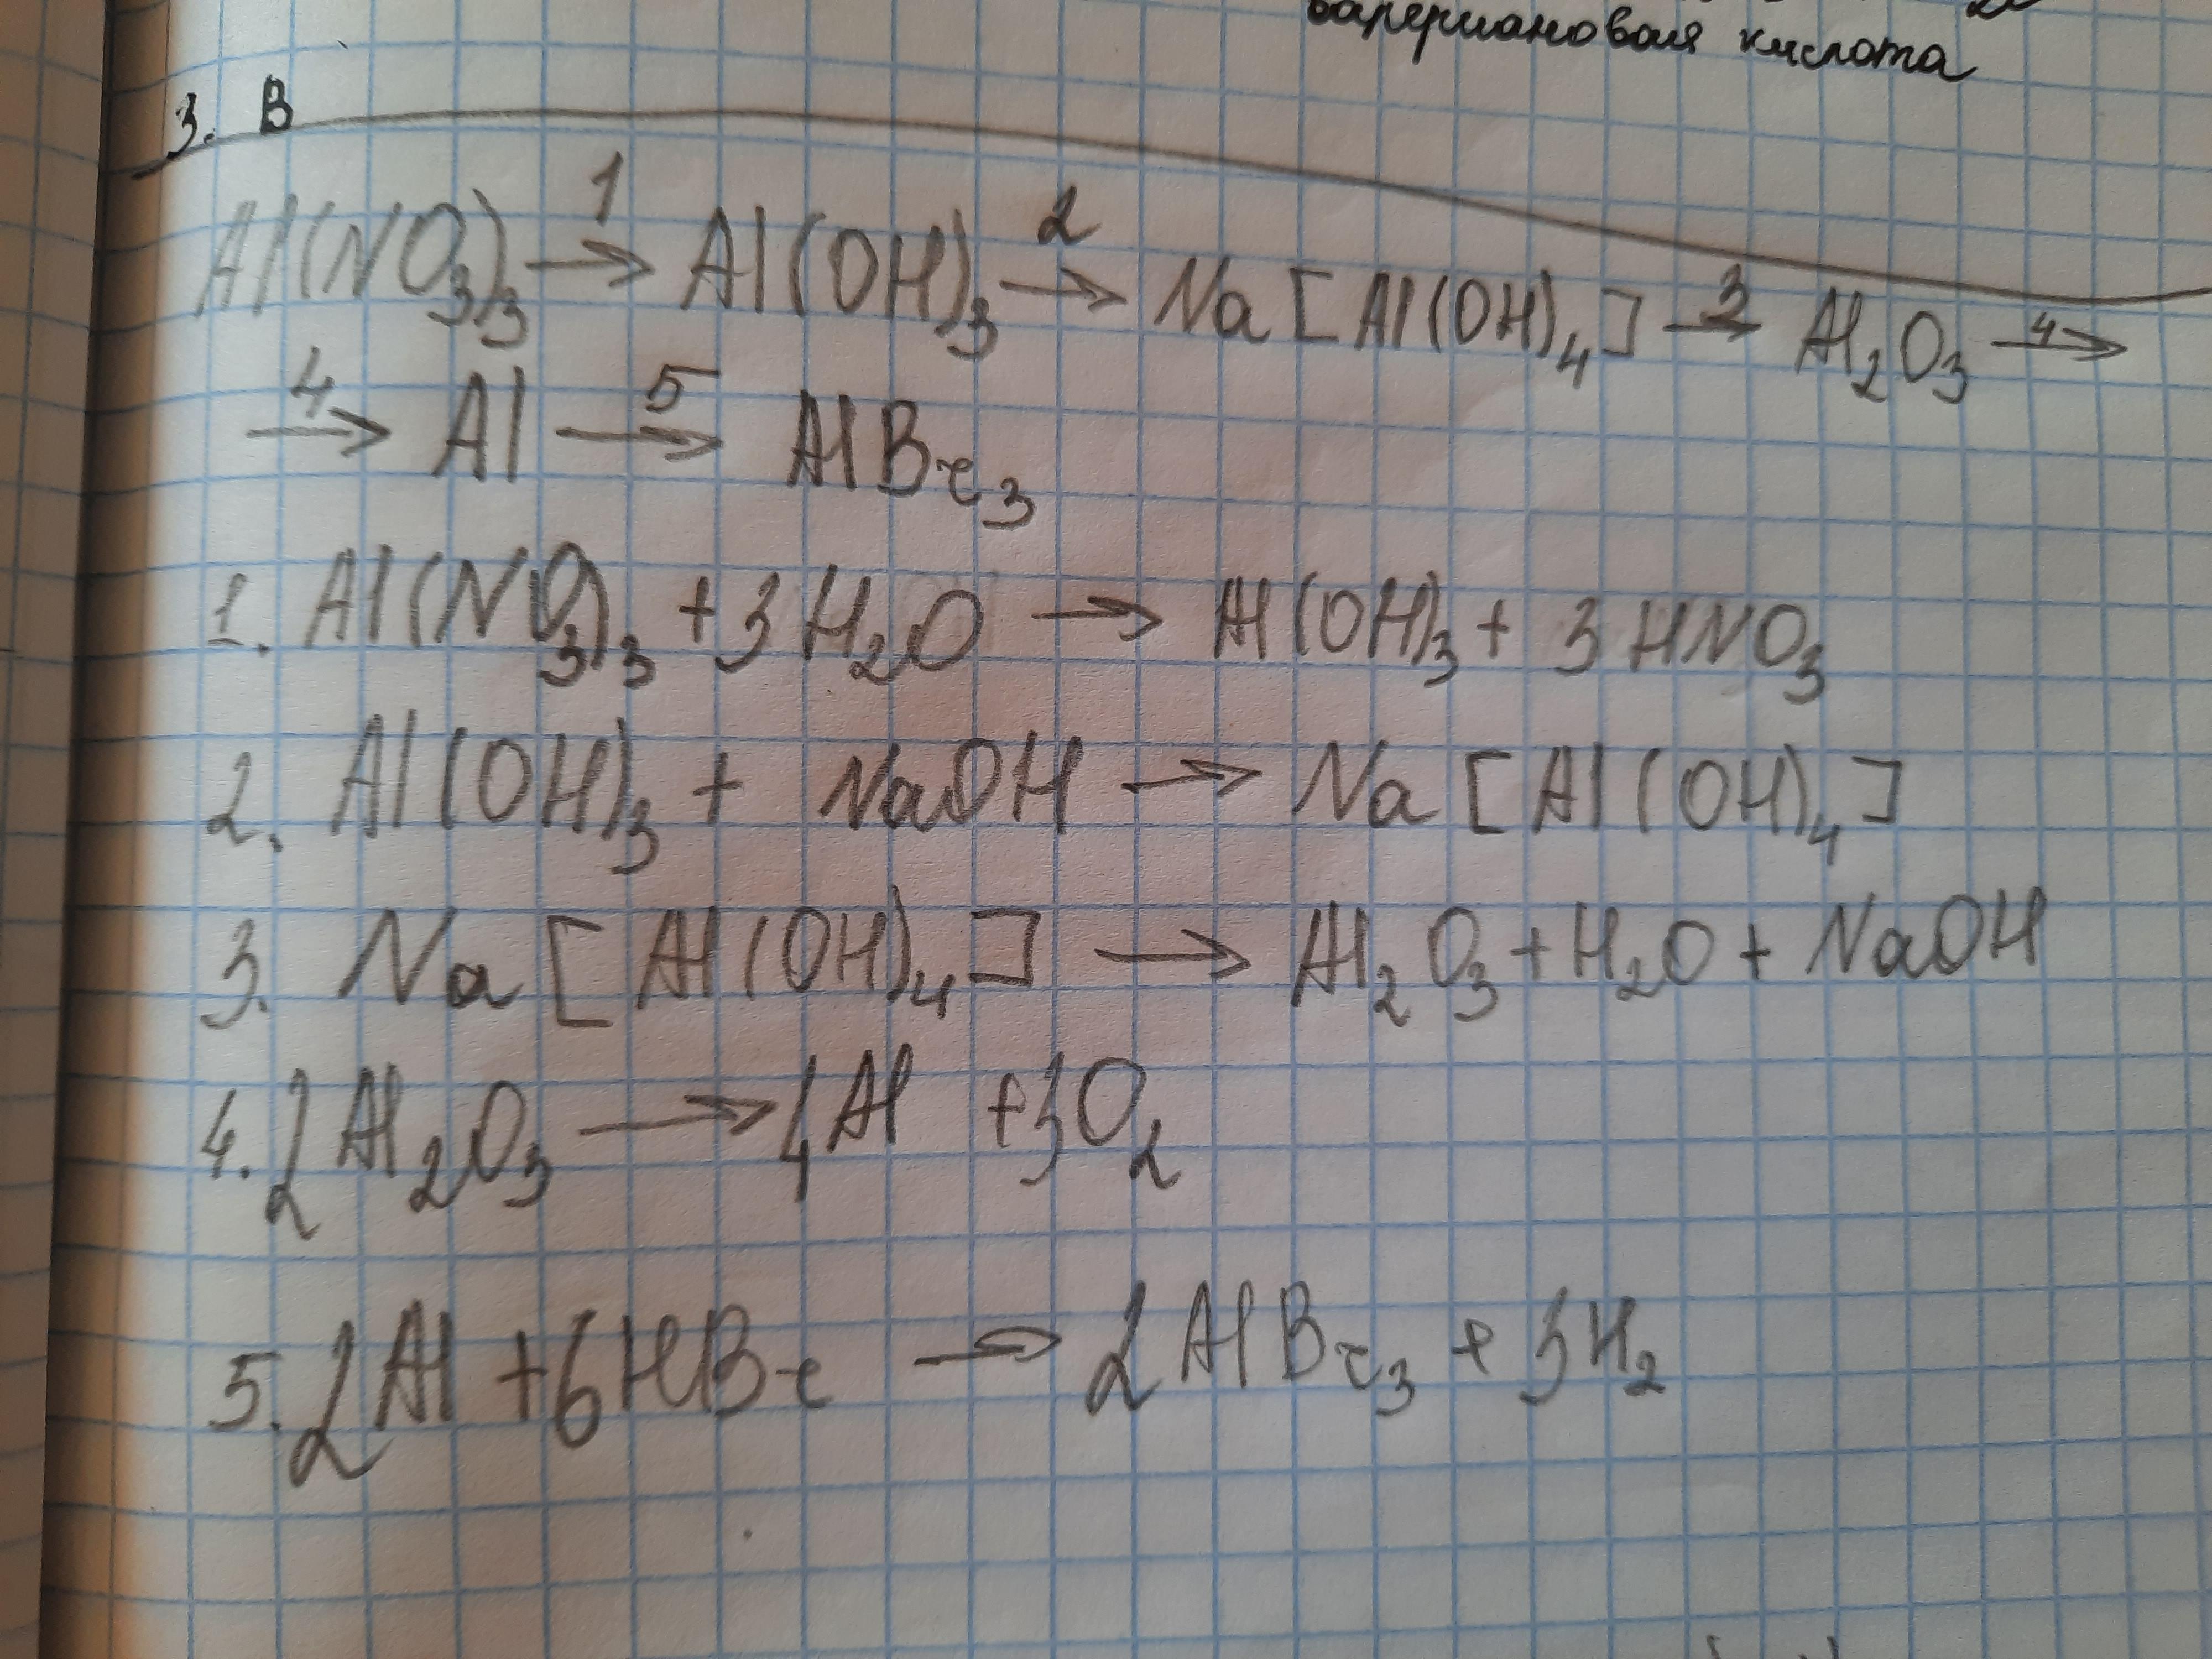 кислота
3. В
Al(NO₃)₃ —1→ Al(OH)₃ —2→ Na[Al(OH)₄] —3→ Al₂O₃ —4→
—4→ Al —5→ AlBr₃
1. Al(NO₃)₃ + 3H₂O → Al(OH)₃ + 3HNO₃
2. Al(OH)₃ + NaOH → Na[Al(OH)₄]
3. Na[Al(OH)₄] → Al₂O₃ + H₂O + NaOH
4. 2Al₂O₃ → 4Al + 3O₂
5. 2Al + 6HBr → 2AlBr₃ + 3H₂